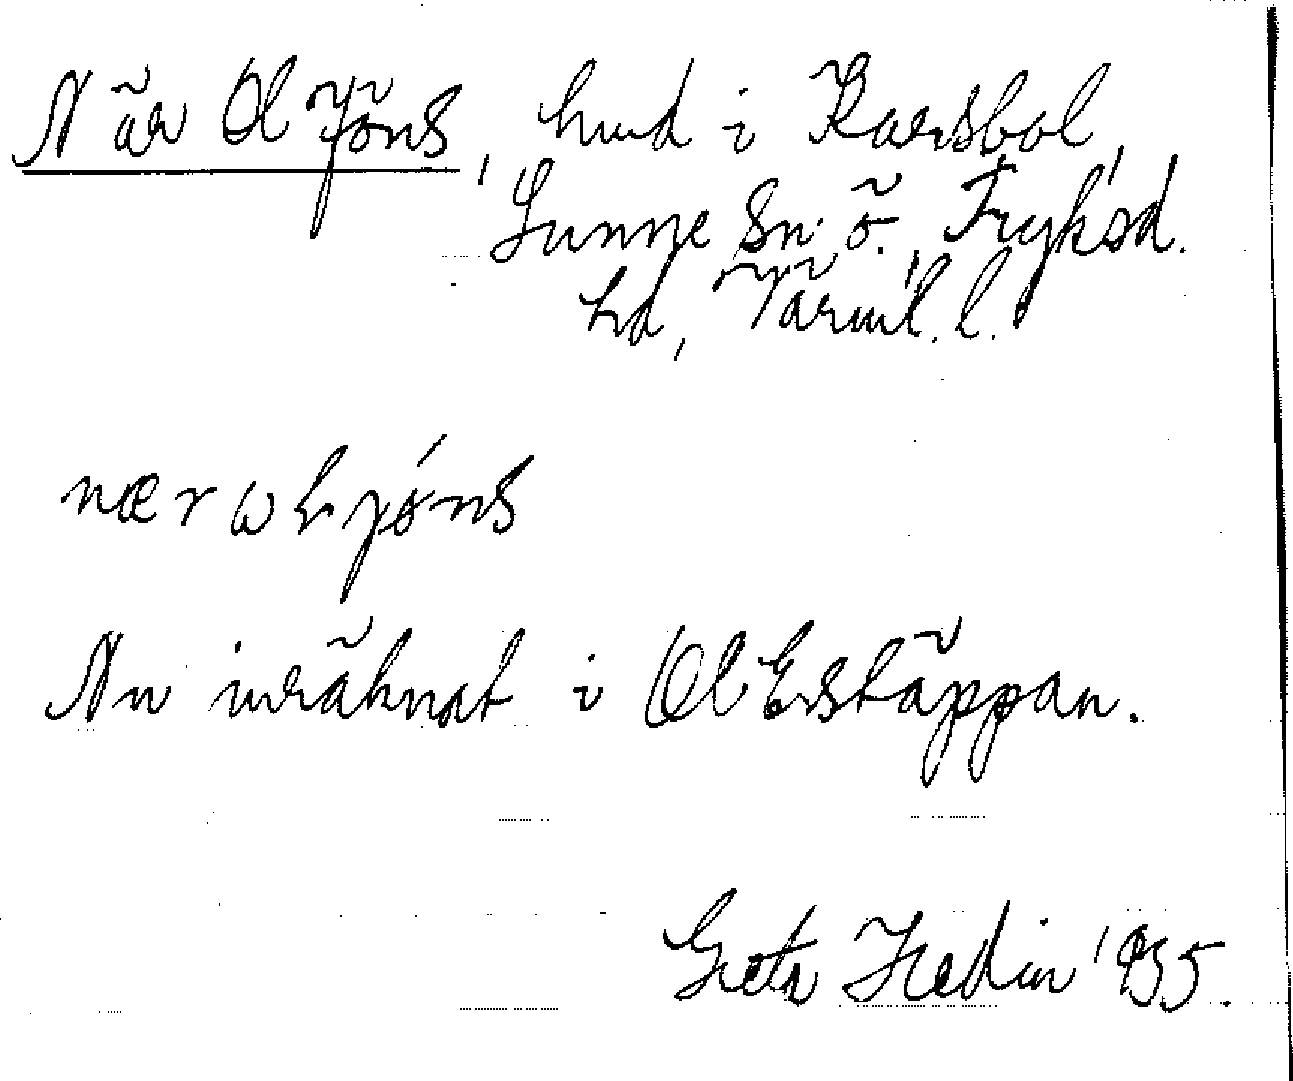 När Ol Jöns, hmd i Karsbol,
Sunne Sn. Ö. Fryksd.
hd, Värml. l.
nær ωL jǿns
Nu inräknat i Ol Erstäppan.
Greta Hedin 1935.